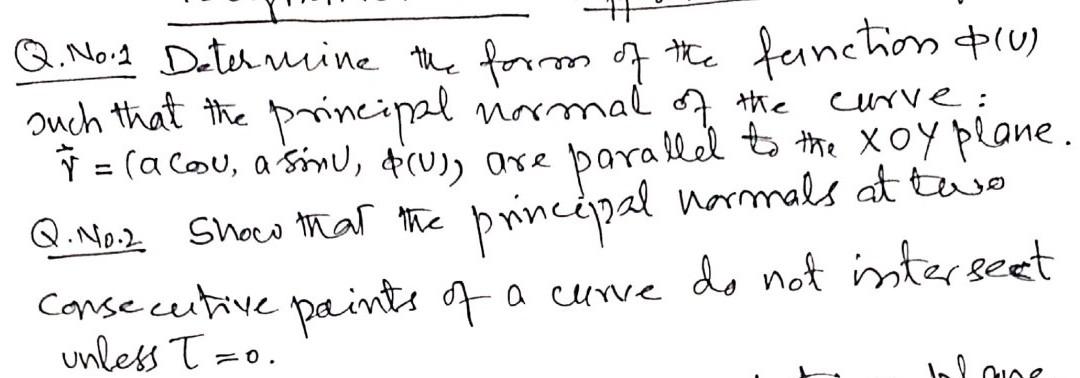 Q.No.1 Determine the form of the function φ(u)
such that the principal normal of the curve :
r⃗ = (a cosu, a sinu, φ(u)) are parallel to the XOY plane.
Q.No.2 Show that the principal normals at two
consecutive points of a curve do not intersect
unless τ = 0.
plane